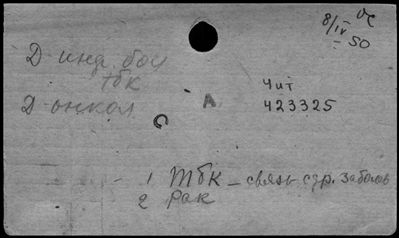 8/IV 50
Д-инд. бол
тбк
Д-онкол
А
С
Чит
423325
1 Тбк - связь с др. забол
2 рак